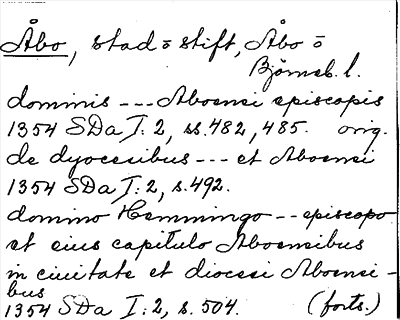 Åbo, stad o stift, Åbo o
Björneb. l.
dominis --- Aboensi episcopis
1354 SDa I: 2, ss. 482, 485. orig.
de dyocesibus --- et Aboensi
1354 SDa I: 2, s. 492.
domino Hemmingo -- episcopo
et eius capitulo Aboensibus
in ciuitate et diocesi Aboensi-
bus
1354 SDa I: 2, s. 504. (forts.)